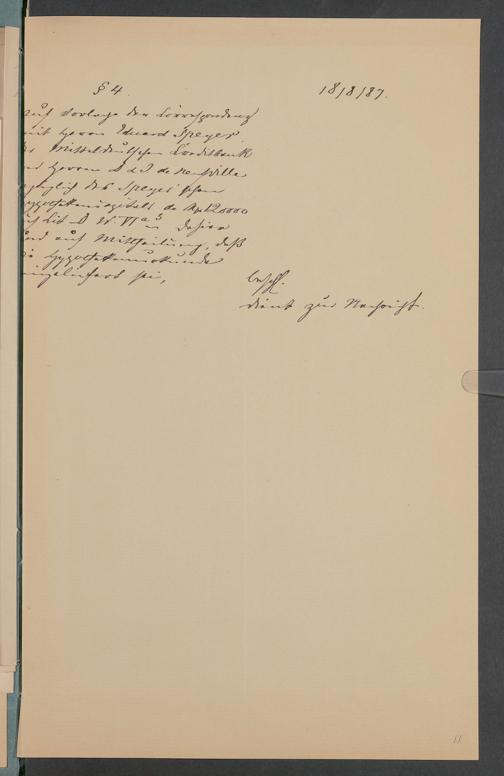 § 4.
18/8/87.
Auf Vorlage der Correspondenz
mit Herrn Eduard Speyer
der Mitteldeutschen Creditbank
und Herren D & J de Neufville
bezüglich des Speyer'schen
Hypothekencapitals de 120000
auch Lit D No VI
und auf Mittheilung, daß
die Hypothekenurkunde
eingeliefert sei,
beschl.
dient zur Nachricht.
11